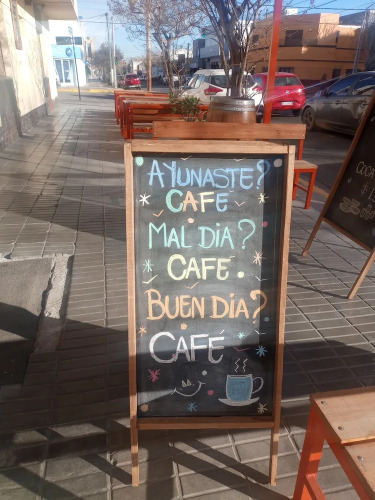 AYUNASTE?
CAFE
MAL DIA?
CAFE.
BUEN DÍA?
CAFÉ